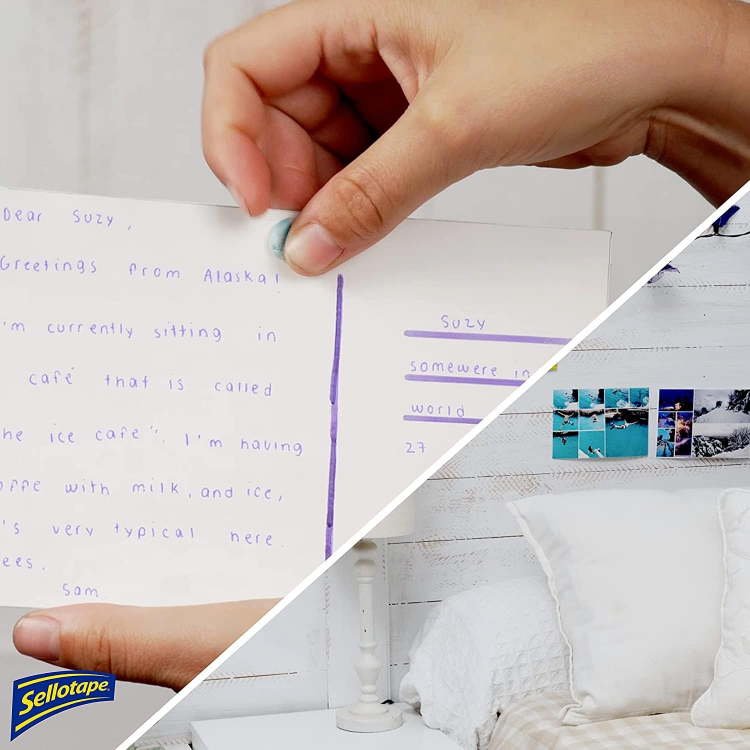 Dear Suzy,
Greetings from Alaska!
'm currently sitting in
café that is called
he ice café". I'm having
offe with milk, and ice,
's very typical here.
ees,
Sam.
Suzy
somewere in
world
27
Sellotape